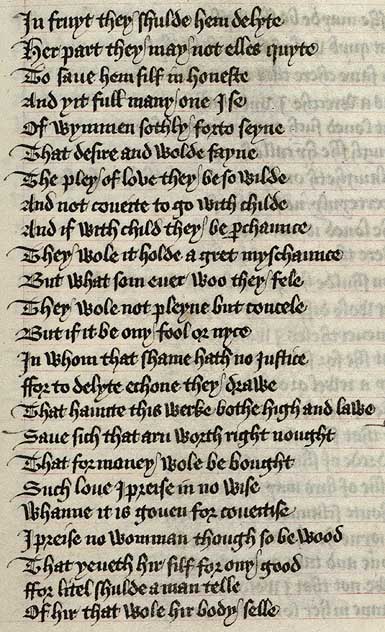 In fruyt they shulde hem delyte
Her part they may not elles quyte
To saue hem silf in honeste
And yit full many one I se
Of wymmen sothly forto seyne
That desire and wolde fayne
The pley of love they be so wilde
And not coueite to go with childe
And if with child they be ꝑchaunce
They wole it holde a gret myschaunce
But what som euer woo they fele
They wole not pleyne but concele
But if it be ony fool or nyce
In whom that shame hath no iustice
ffor to delyte echone they drawe
That haunte this werke bothe high and lawe
Saue sich that arn worth right nought
That for money wole be bought
Such loue I preise in no wise
Whanne it is goven for coueitise
I preise no womman though so be wood
That yeueth hir silf for ony good
ffor litel shulde a man telle
Of hir that wole hir body selle